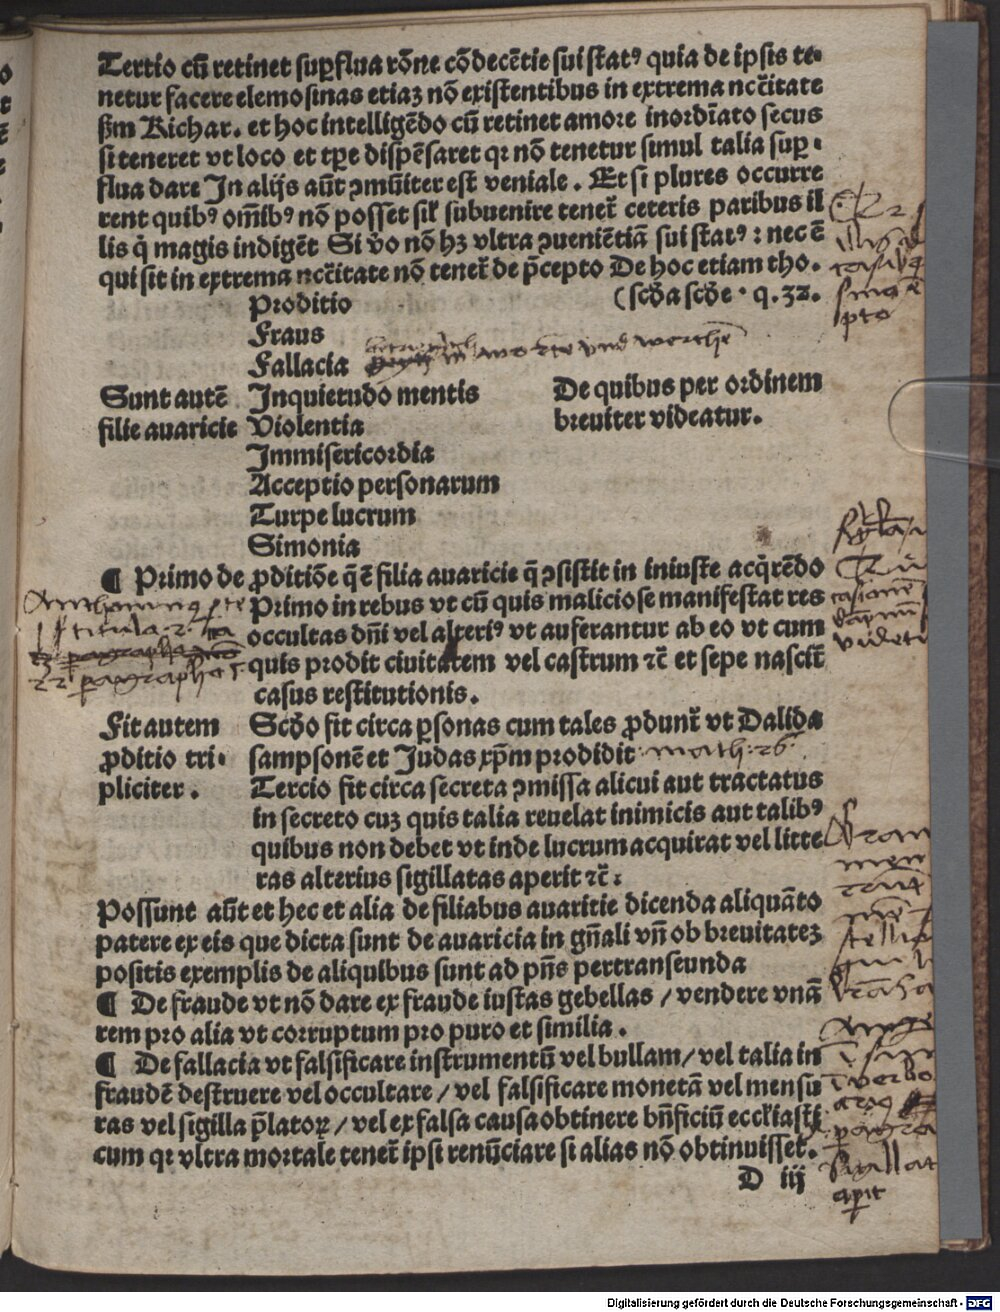 Tertio cū retinet suꝑflua rōne cōdecētie sui statꝰ quia de ipsis te-
netur facere elemosinas etiaꝫ nō existentibus in extrema nccītate
ẜm Richar. et hoc intelligēdo cū retinet amore inordīato secus
si teneret vt loco et tꝑe dispēsaret qꝛ nō tenetur simul talia suꝑ-
flua dare In alijs aūt ꝯmūiter est veniale. Et si plures occurre
rent quibꝰ om̄ibꝰ nō posset sil̄ subuenire tenet̄ ceteris paribus il
lis q̇ magis indigēt Si v̄o nō hꝫ vltra ꝯueniētiā sui statꝰ: nec ē
qui sit in extrema nccītate nō tenet̄ de p̄cepto De hoc etiam tho.
Proditio (scḋa scḋe. q. 32.
Fraus
Fallacia in worte vnd werchē
Sunt autē Inquietudo mentis De quibus per ordinem
filie auaricie Violentia breuiter videatur.
Immisericordia
Acceptio personarum
Turpe lucrum
Simonia
¶ Primo de ꝓditiōe q̄ ē filia auaricie q̄ ꝯsistit in iniuste acq̇rēdo
Primo in rebus vt cū quis maliciose manifestat res
occultas dn̄i vel alteriꝰ vt auferantur ab eo vt cum
quis prodit ciuitatem vel castrum ⁊c̄ et sepe nascit̄
casus restitutionis.
Fit autem Scḋo fit circa ꝑsonas cum tales ꝓdunt̄ vt Dalida
ꝓditio tri- sampsonē et Judas xp̄m prodidit math. 26.
pliciter. Tercio fit circa secreta ꝯmissa alicui aut tractatus
in secreto cuꝫ quis talia reuelat inimicis aut talibꝰ
quibus non debet vt inde lucrum acquirat vel litte
ras alterius sigillatas aperit ⁊c̄:
Possunt aūt et hec et alia de filiabus auaritie dicenda aliquāto
patere ex eis que dicta sunt de auaricia in gn̄ali vn̄ ob breuitateꝫ
positis exemplis de aliquibus sunt ad pn̄s pertranseunda
¶ De fraude vt nō dare ex fraude iustas gebellas / vendere vnā
rem pro alia vt corruptum pro puro et similia.
¶ De fallacia vt falsificare instrumentū vel bullam / vel talia in
fraudē destruere vel occultare / vel falsificare monetā vel mensu
ras vel sigilla p̄latoꝝ / vel ex falsa causa obtinere bn̄ficiū eccl̄iasti
cum qꝛ vltra mortale tenet̄ ipsi renūciare si alias nō obtinuisset.
D iij
sigillat
aperit
Digitalisierung gefördert durch die Deutsche Forschungsgemeinschaft - DFG